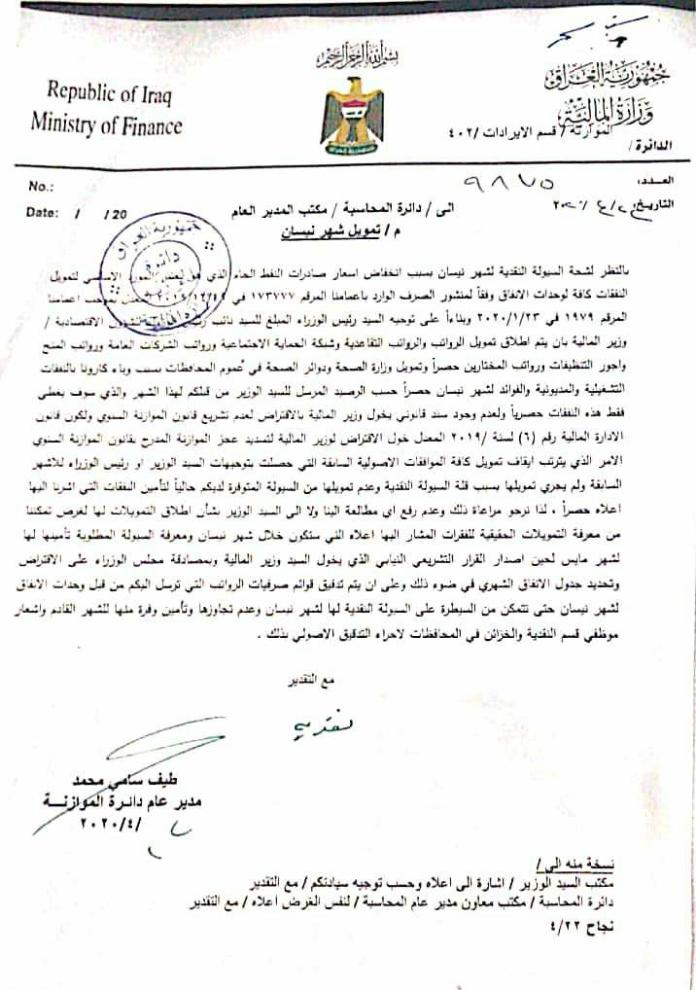 بسم الله الرحمن الرحيم
Republic of Iraq
Ministry of Finance
جمهورية العراق
وزارة المالية
الموازنة / قسم الايرادات /٤٠٢
الدائرة /
No.:
Date: / /20
العدد: ٩٨٧٥
التاريخ:
الى / دائرة المحاسبة / مكتب المدير العام
م / تمويل شهر نيسان
جمهورية العراق
دائرة
بالنظر لشحة السيولة النقدية لشهر نيسان بسبب انخفاض اسعار صادرات النفط الخام الذي يعتبر المورد الاساسي لتمويل
النفقات كافة لوحدات الانفاق وفقاً لمنشور الصرف الوارد باعمامنا المرقم ١٧٣٧٧٧ في المعدل بموجب اعمامنا
المرقم ١٩٧٩ في ٢٠٢٠/١/٢٣ وبناءاً على توجيه السيد رئيس الوزراء المبلغ للسيد نائب رئيس للشؤون الاقتصادية /
وزير المالية بان يتم اطلاق تمويل الرواتب والرواتب التقاعدية وشبكة الحماية الاجتماعية ورواتب الشركات العامة ورواتب المنح
واجور التنظيفات ورواتب المختارين حصراً وتمويل وزارة الصحة ودوائر الصحة في عموم المحافظات بسبب وباء كارونا بالنفقات
التشغيلية والمديونية والفوائد لشهر نيسان حصراً حسب الرصيد المرسل للسيد الوزير من قبلكم لهذا الشهر والذي سوف يغطي
فقط هذه النفقات حصرياً ولعدم وجود سند قانوني يخول وزير المالية بالاقتراض لعدم تشريع قانون الموازنة السنوي ولكون قانون
الادارة المالية رقم (٦) لسنة /٢٠١٩ المعدل خول الاقتراض لوزير المالية لتسديد عجز الموازنة المدرج بقانون الموازنة السنوي
الامر الذي يترتب ايقاف تمويل كافة الموافقات الاصولية السابقة التي حصلت بتوجيهات السيد الوزير او رئيس الوزراء للاشهر
السابقة ولم يجري تمويلها بسبب قلة السيولة النقدية وعدم تمويلها من السيولة المتوفرة لديكم حالياً لتأمين النفقات التي اشرنا اليها
اعلاه حصراً ، لذا نرجو مراعاة ذلك وعدم رفع اي مطالعة الينا ولا الى السيد الوزير بشأن اطلاق التمويلات لها لغرض تمكننا
من معرفة التمويلات الحقيقية للفقرات المشار اليها اعلاه التي ستكون خلال شهر نيسان ومعرفة السيولة المطلوبة تأمينها لها
لشهر مايس لحين اصدار القرار التشريعي النيابي الذي يخول السيد وزير المالية وبمصادقة مجلس الوزراء على الاقتراض
وتحديد جدول الانفاق الشهري في ضوء ذلك وعلى ان يتم تدقيق قوائم صرفيات الرواتب التي ترسل اليكم من قبل وحدات الانفاق
لشهر نيسان حتى نتمكن من السيطرة على السيولة النقدية لها لشهر نيسان وعدم تجاوزها وتأمين وفرة منها للشهر القادم واشعار
موظفي قسم النقدية والخزائن في المحافظات لاجراء التدقيق الاصولي بذلك .
مع التقدير
طيف سامي محمد
مدير عام دائرة الموازنــة
/٢٠٢٠/٤
نسخة منه الى /
مكتب السيد الوزير / اشارة الى اعلاه وحسب توجيه سيادتكم / مع التقدير
دائرة المحاسبة / مكتب معاون مدير عام المحاسبة / لنفس الغرض اعلاه / مع التقدير
نجاح ٤/٢٢